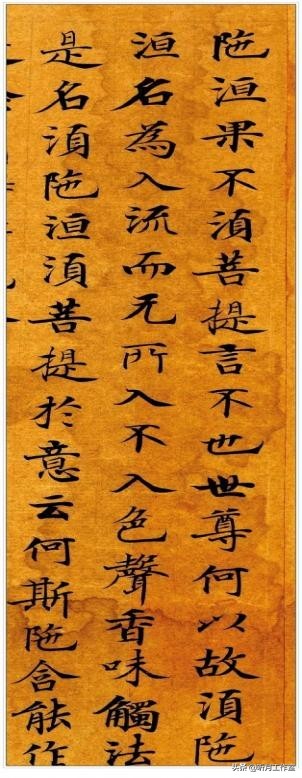 陁洹果不湏菩提言不也世尊何以故湏陁
洹名為入流而无所入不入色聲香味觸法
是名湏陁洹湏菩提於意云何斯陁含能作
头条